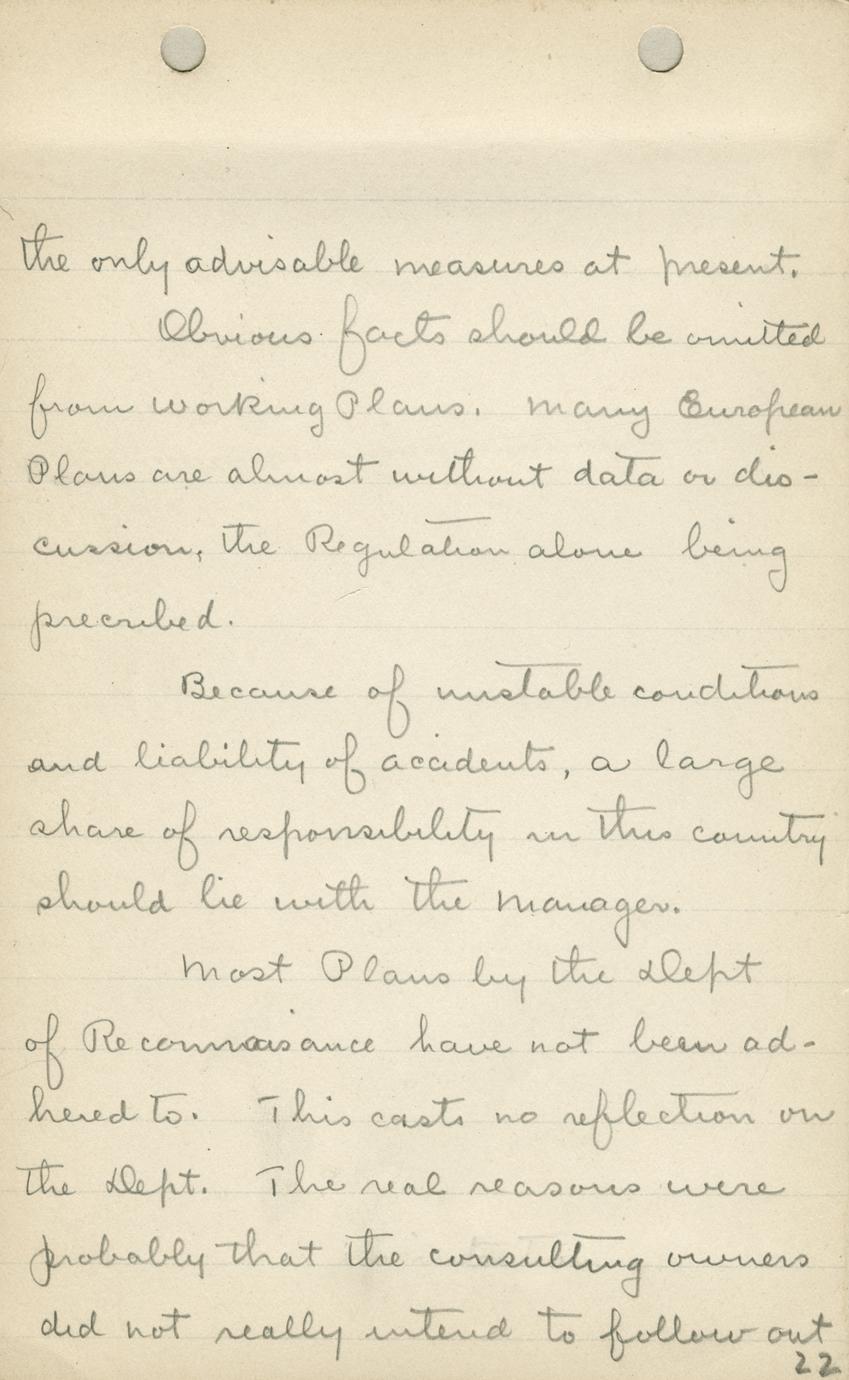 the only advisable measures at present.
Obvious facts should be omitted
from working Plans. Many European
Plans are almost without data or dis-
cussion, the Regulation alone being
precribed.
Because of unstable conditions
and liability of accidents, a large
share of responsibility in this country
should lie with the manager.
Most Plans by the Dept
of Reconnaisance have not been ad-
hered to. This casts no reflection on
the Dept. The real reasons were
probably that the consulting owners
did not really intend to follow out
22